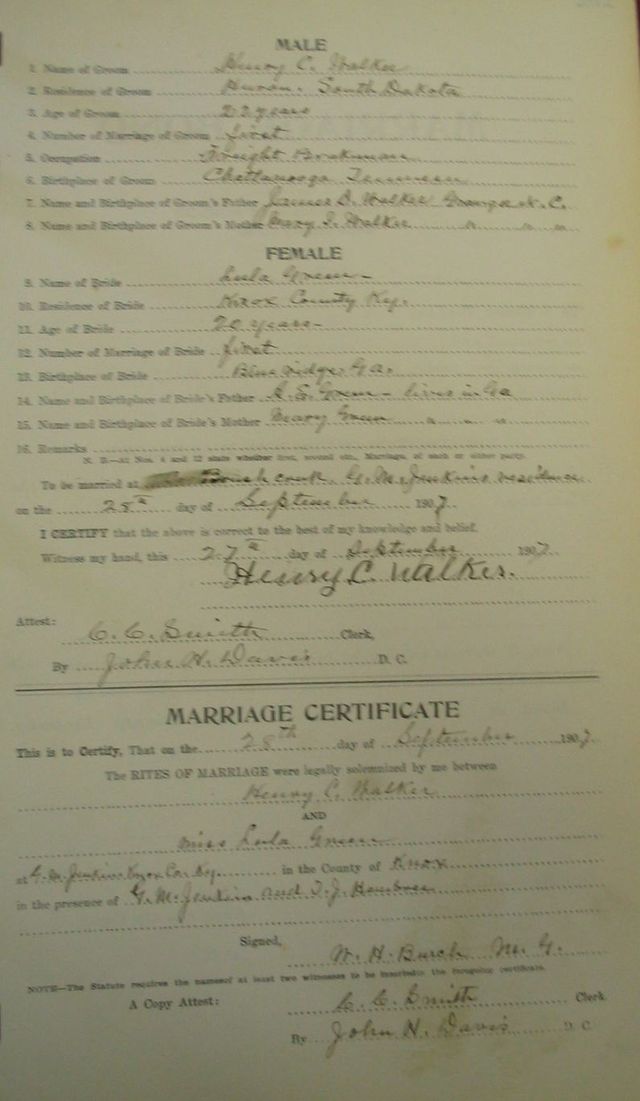 MALE
1. Name of Groom Henry C. Walker
2. Residence of Groom Huron, South Dakota
3. Age of Groom 22 years
4. Number of Marriage of Groom first
5. Occupation Freight Brakeman
6. Birthplace of Groom Chattanooga
7. Name and Birthplace of Groom's Father James D. Walker N. C.
8. Name and Birthplace of Groom's Mother Mary J. Walker " " "
FEMALE
9. Name of Bride Lula Green
10. Residence of Bride Knox County Ky.
11. Age of Bride 20 years
12. Number of Marriage of Bride first
13. Birthplace of Bride Blue ridge, Ga.
14. Name and Birthplace of Bride's Father Green - lives in Ga
15. Name and Birthplace of Bride's Mother Mary Green " " "
16. Remarks
N. B.—At Nos. 4 and 12 state whether first, second, etc., Marriage, of each or either party.
To be married at G. M. Jenkins residence
on the 28th day of September 1907.
I CERTIFY that the above is correct to the best of my knowledge and belief.
Witness my hand, this 27th day of September 1907.
Henry C. Walker.
Attest:
C. C. Smith Clerk,
By John H. Davis D. C.
MARRIAGE CERTIFICATE
This is to Certify, That on the 28th day of September 1907.
The RITES OF MARRIAGE were legally solemnized by me between
Henry C. Walker
AND
Miss Lula Green
at G. M. Jenkins Knox Co. Ky. in the County of Knox
in the presence of G. M. Jenkins and T. J.
Signed,
W. H. Burch M. G.
NOTE—The Statute requires the names of at least two witnesses to be inserted in the foregoing certificate.
A Copy Attest: C. C. Smith Clerk
By John H. Davis D. C.